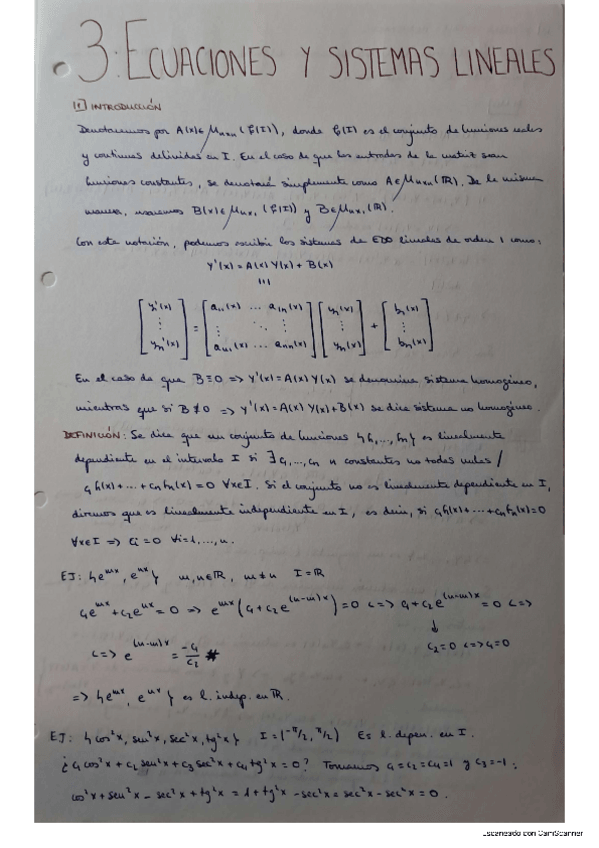 3: ECUACIONES Y SISTEMAS LINEALES
1 INTRODUCCIÓN
Denotaremos por A(x)∈Mnxn(C(I)), donde C(I) es el conjunto de funciones reales
y continuas definidas en I. En el caso de que las entradas de la matriz sean
funciones constantes, se denotará simplemente como A∈Mnxn(ℝ). De la misma
manera, usaremos B(x)∈Mnx1(C(I)) y B∈Mnx1(ℝ).
Con esta notación, podemos escribir los sistemas de EDO lineales de orden 1 como:
Y'(x)=A(x)Y(x)+B(x)
[y1'(x) ⋮ yn'(x)] = [a11(x) ... a1n(x) ⋮ ⋱ ⋮ an1(x) ... ann(x)] [y1(x) ⋮ yn(x)] + [b1(x) ⋮ bn(x)]
En el caso de que B≡0 => Y'(x)=A(x)Y(x) se denomina sistema homogéneo,
mientras que si B≢0 => Y'(x)=A(x)Y(x)+B(x) se dice sistema no homogéneo.
DEFINICIÓN: Se dice que un conjunto de funciones {f1,...,fn} es linealmente
dependiente en el intervalo I si ∃ c1,...,cn n constantes no todas nulas /
c1f1(x)+...+cnfn(x)=0 ∀x∈I. Si el conjunto no es linealmente dependiente en I,
diremos que es linealmente independiente en I, es decir, si c1f1(x)+...+cnfn(x)=0
∀x∈I => ci=0 ∀i=1,...,n.
EJ: {e^mx, e^nx} m,n∈ℝ, m≠n I=ℝ
c1e^mx+c2e^nx=0 => e^mx(c1+c2e^(n-m)x)=0 <=> c1+c2e^(n-m)x=0 <=>
↓
c2=0 <=> c1=0
<=> e^(n-m)x = -c1/c2 #
=> {e^mx, e^nx} es l. indep. en ℝ.
EJ: {cos²x, sen²x, sec²x, tg²x} I=(-π/2, π/2) Es l. depen. en I.
¿c1cos²x+c2sen²x+c3sec²x+c4tg²x=0? Tomamos c1=c2=c4=1 y c3=-1:
cos²x+sen²x-sec²x+tg²x=1+tg²x-sec²x=sec²x-sec²x=0.
Escaneado con CamScanner